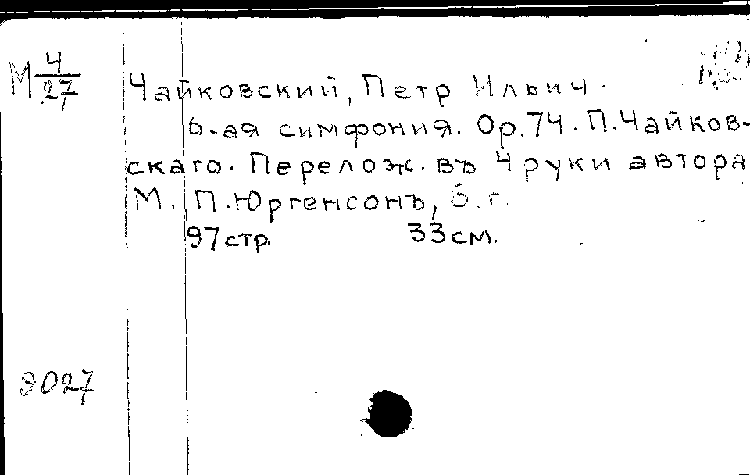 М 4/27
Чайковский, Петр Ильич.
6-ая симфония. Op. 74. П. Чайков-
скаго. Перелож. въ 4 руки автора
М. П. Юргенсонъ, б. г.
97 стр. 33 см.
9027